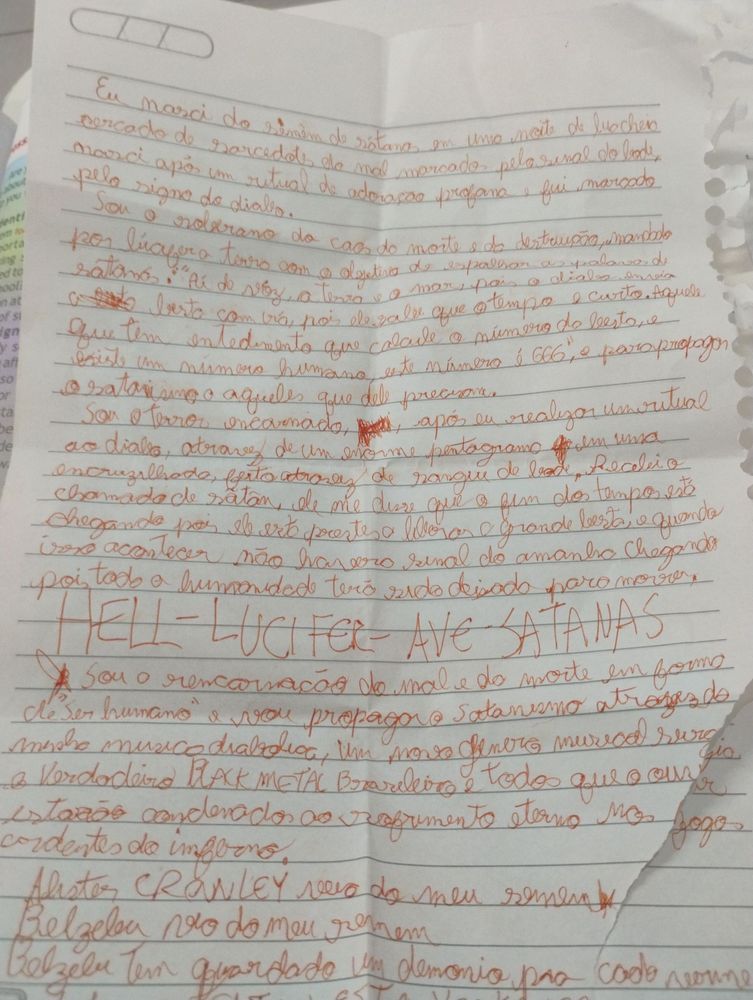 Eu nasci do sêmem de sátana em uma noite de lua cheia
cercado de sarcedotes do mal marcados pelo sinal do bode,
nasci após um ritual de adoração profana e fui marcado
pelo signo do diabo.
Sou o soberano do caos da morte e da destruição, mandado
por lúcifer a terra com o objetivo de espalhar as palavras de
sátanás: "Ai de vós, a terra e o mar, pois o diabo envia
a besta com ira, pois ele sabe que o tempo é curto. Aquele
que tem entedimento que calcule o número da besta, e
um número humano, este número é 666", e para propagar
o satanismo a aqueles que dele precisam.
Sou o terror encarnado, após eu realizar um ritual
ao diabo, atravez de um enorme pentagrama em uma
encruzilhada, feito atravez de sangue de bode, Recebi o
chamado de sátan, ele me disse que o fim dos tempos está
chegando pois ele está prestes a liberar a grande besta, e quando
isso acontecer não havera sinal do amanha chegando
pois toda a humanidade terá sido deixada para morrer.
HELL-LUCIFER-AVE-SATANAS
Sou a reencarnação do mal e da morte em forma
de "Ser humano" e vou propagar o Satanismo atravez da
minha musica diabolica, Um novo gênero musical
o Verdadeiro BLACK METAL Brasileiro e todos que o ouvir
estarão condenados ao sofrimento eterno nos fogos
ardentes do inferno.
CROWLEY veio do meu semem
Belzebu veio do meu semem
Belzebu tem guardado um demonio pra cada